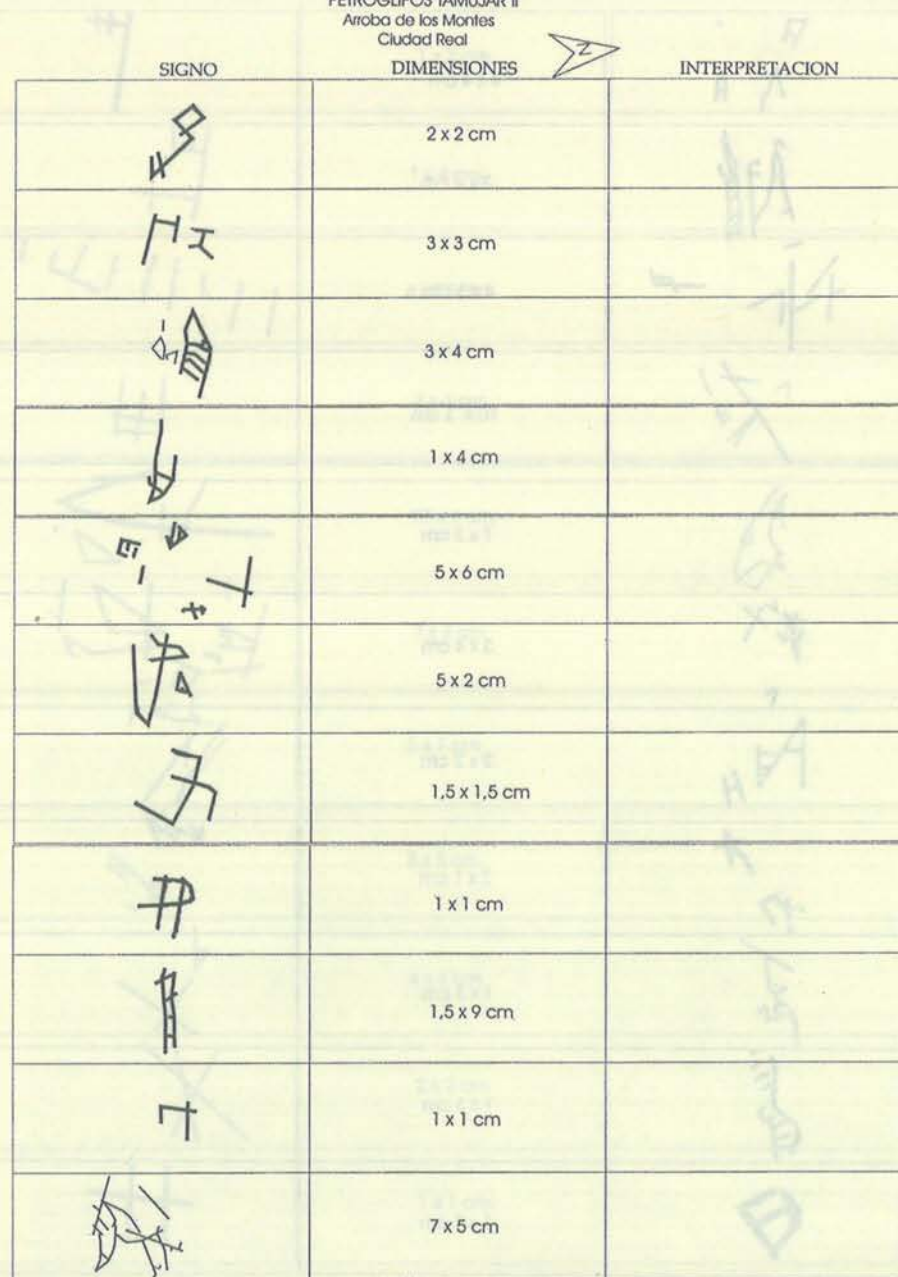 PETROGLIFOS TAMUJAR II
Arroba de los Montes
Ciudad Real
N
SIGNO DIMENSIONES INTERPRETACION
2 x 2 cm
3 x 3 cm
3 x 4 cm
1 x 4 cm
5 x 6 cm
5 x 2 cm
1,5 x 1,5 cm
1 x 1 cm
1,5 x 9 cm
1 x 1 cm
7 x 5 cm